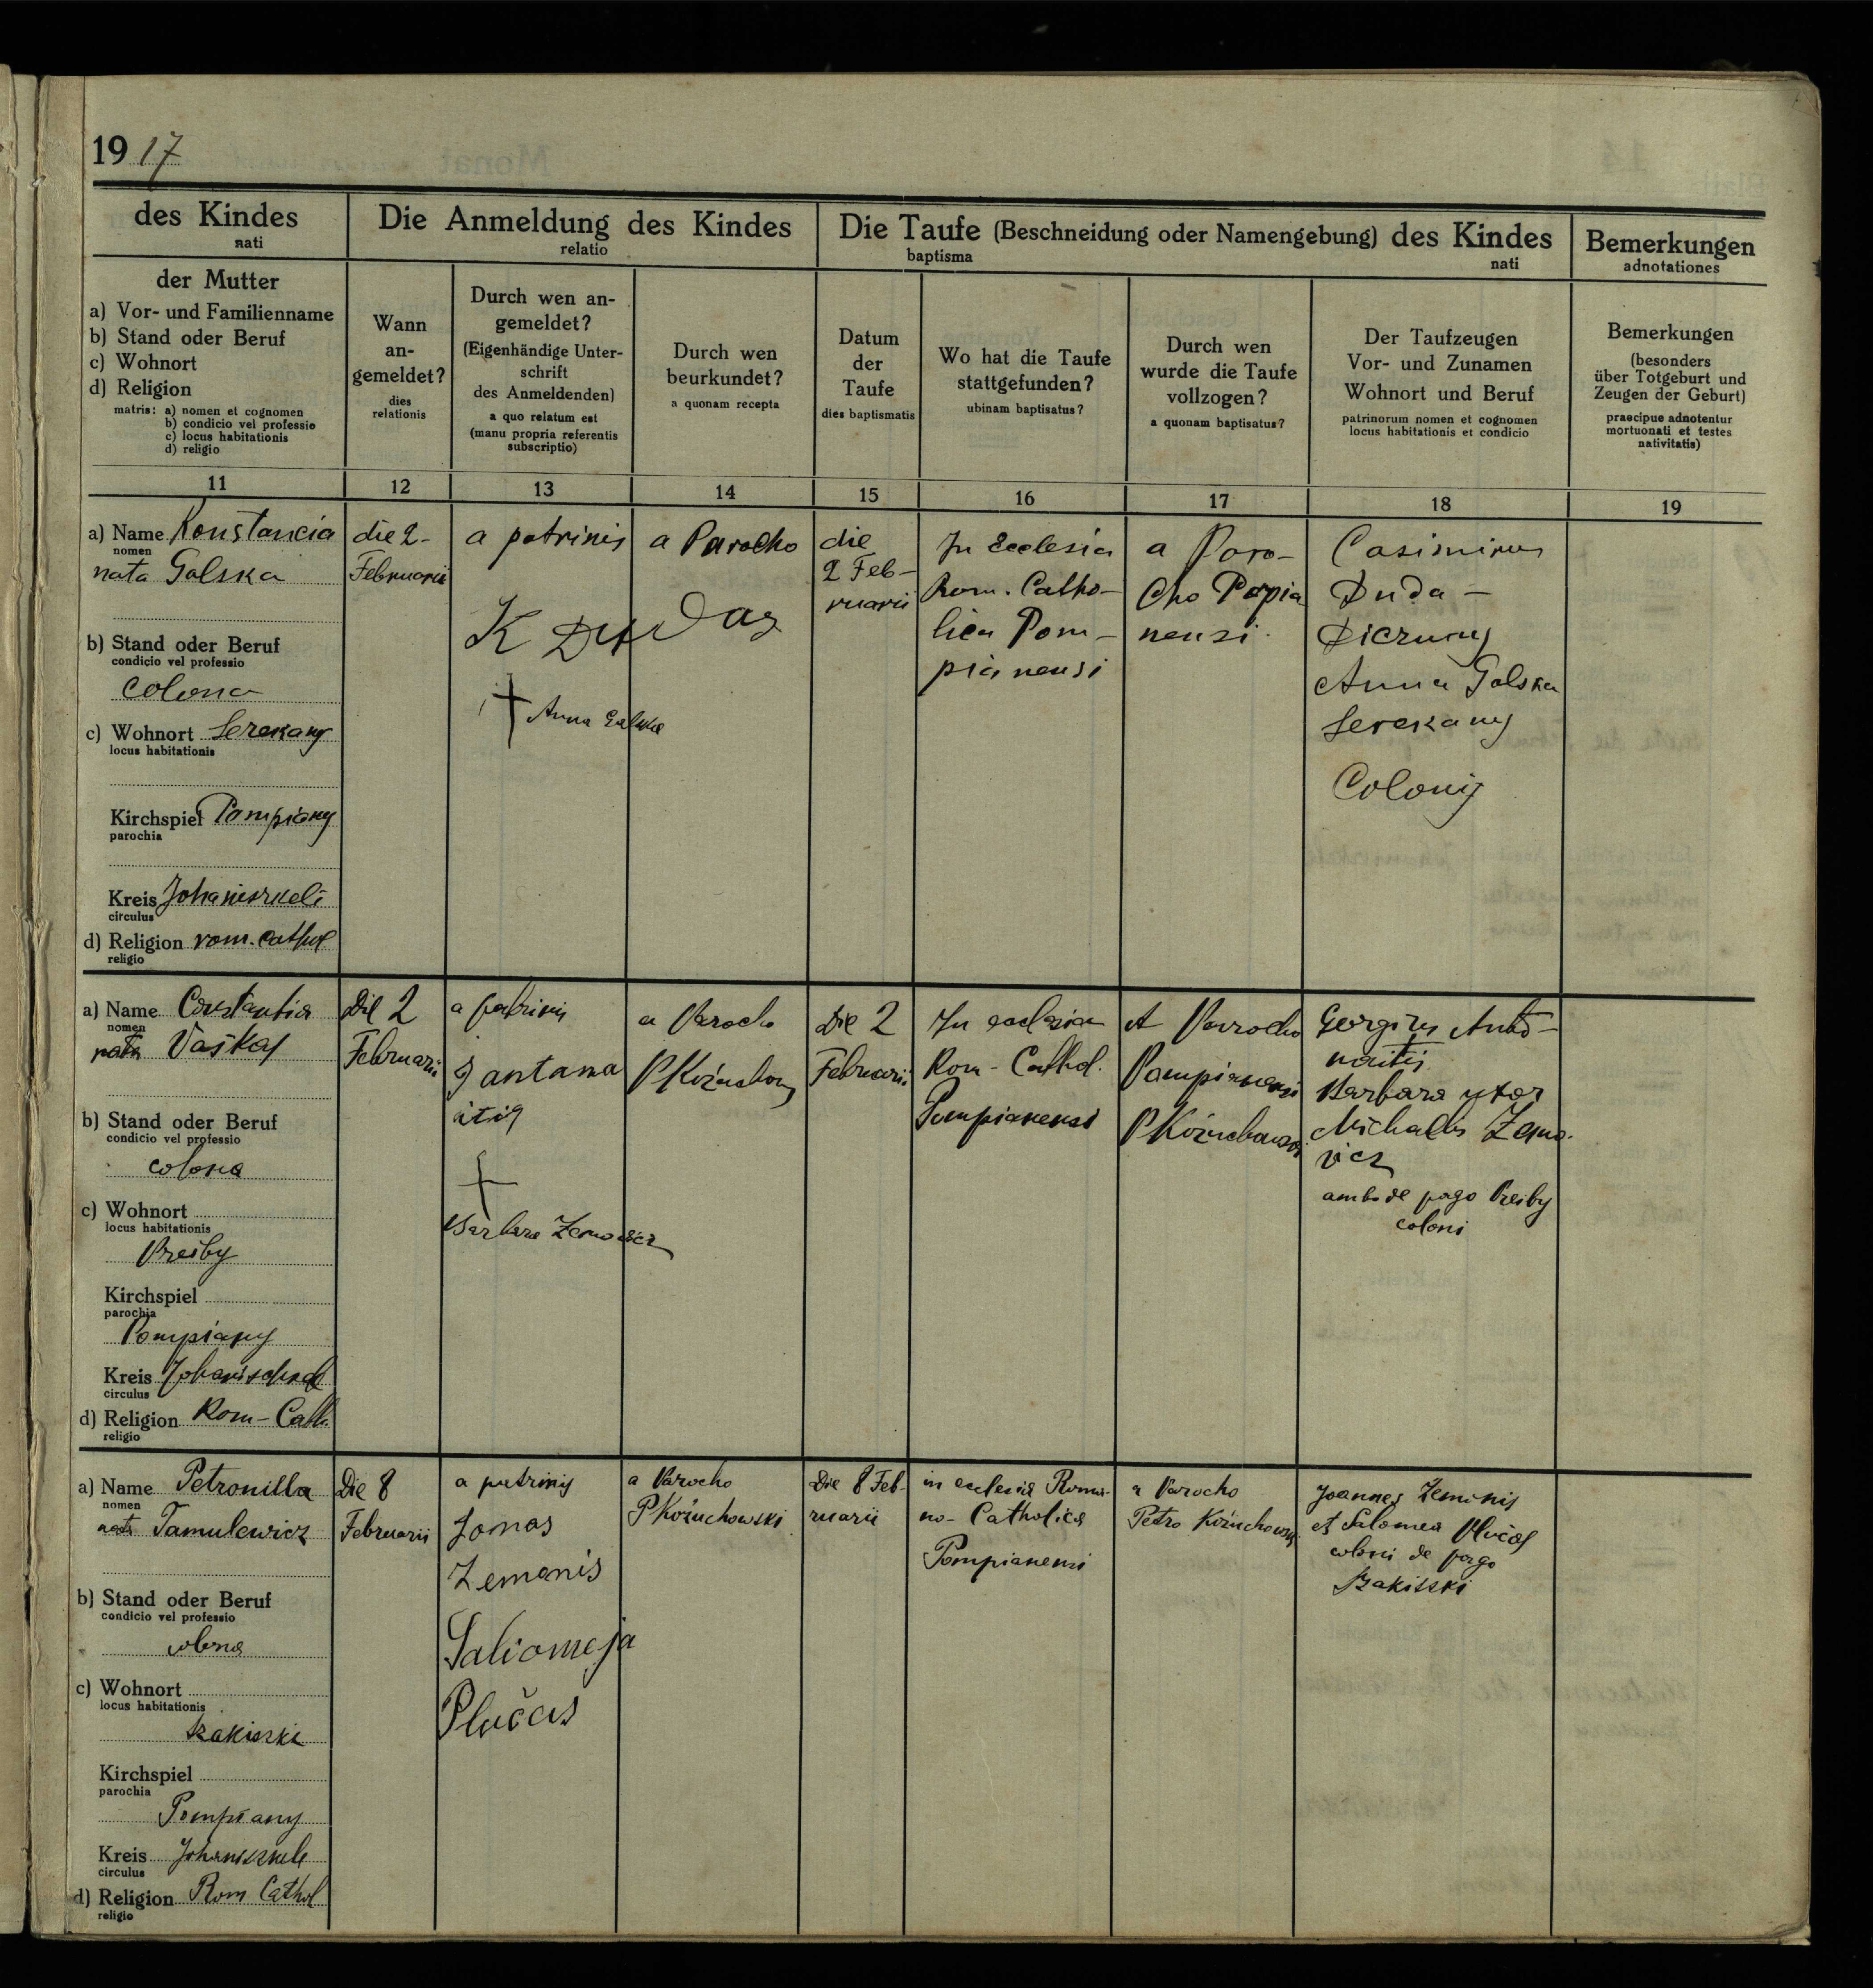 1917
des Kindes
nati
Die Anmeldung des Kindes
relatio
Die Taufe (Beschneidung oder Namengebung) des Kindes
baptisma nati
Bemerkungen
adnotationes
der Mutter
a) Vor- und Familienname
b) Stand oder Beruf
c) Wohnort
d) Religion
matris: a) nomen et cognomen
b) condicio vel professio
c) locus habitationis
d) religio
Wann
an-
gemeldet?
dies
relationis
Durch wen an-
gemeldet?
(Eigenhändige Unter-
schrift
des Anmeldenden)
a quo relatum est
(manu propria referentis
subscriptio)
Durch wen
beurkundet?
a quonam recepta
Datum
der
Taufe
dies baptismatis
Wo hat die Taufe
stattgefunden?
ubinam baptisatus?
Durch wen
wurde die Taufe
vollzogen?
a quonam baptisatus?
Der Taufzeugen
Vor- und Zunamen
Wohnort und Beruf
patrinorum nomen et cognomen
locus habitationis et condicio
Bemerkungen
(besonders
über Totgeburt und
Zeugen der Geburt)
praecipue adnotentur
mortuonati et testes
nativitatis)
11 12 13 14 15 16 17 18 19
a) Name Konstancia
nomen
nata Galska
b) Stand oder Beruf
condicio vel professio
colona
c) Wohnort Serekany
locus habitationis
Kirchspiel Pompiany
parochia
Kreis Johaniszkeli
circulus
d) Religion rom. cathol
religio
die 2-
Februarii
a patrinis
K
Anna Galska
a Parocho
die
2 Feb-
ruarii
In Ecclesia
Rom. Catho-
lica Pom-
pianensi
a Paro-
cho Popia
nensi
Casimirus
Duda -
Anna Galska
Serekany
Colonij
a) Name Constantia
nomen
nata Vaškas
b) Stand oder Beruf
condicio vel professio
colona
c) Wohnort
locus habitationis
Preiby
Kirchspiel
parochia
Pompiany
Kreis
circulus
d) Religion Rom-Cath.
religio
Die 2
Februarii
a patrinis
Barbara
a Parocho
Die 2
Februarii
In ecclesia
Rom-Cathol.
Pompianensi
A Parocho
Pompianensi
Georgius Anto-
Barbara uxor
Michaelis Zemo-
vicz
ambo de pago Preiby
coloni
a) Name Petronilla
nomen
nata Tamulewicz
b) Stand oder Beruf
condicio vel professio
colona
c) Wohnort
locus habitationis
Szakiszki
Kirchspiel
parochia
Pompiany
Kreis Johaniszkele
circulus
d) Religion Rom Cathol
religio
Die 8
Februarii
a patrinis
Jonas
Zemonis
Saliomeja
Plučas
a Parocho
P Koźuchowski
Die 8 Feb-
ruarii
in ecclesia Roma-
no-Catholica
Pompianensi
a Parocho
Petro Koźuchowski
Joannes Zemonis
et Salomea Plučas
coloni de pago
Szakiszki